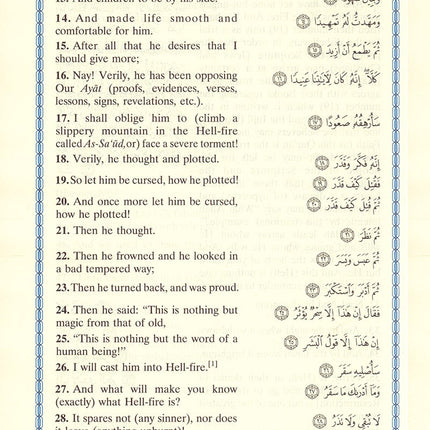 14. And made life smooth and
comfortable for him.
وَمَهَّدتُّ لَهُ تَمْهِيدًا ﴿١٤﴾
15. After all that he desires that I
should give more;
ثُمَّ يَطْمَعُ أَنْ أَزِيدَ ﴿١٥﴾
16. Nay! Verily, he has been opposing
Our Ayât (proofs, evidences, verses,
lessons, signs, revelations, etc.).
كَلَّا إِنَّهُ كَانَ لِآيَاتِنَا عَنِيدًا ﴿١٦﴾
17. I shall oblige him to (climb a
slippery mountain in the Hell-fire
called As-Sa'ûd, or) face a severe torment!
سَأُرْهِقُهُ صَعُودًا ﴿١٧﴾
18. Verily, he thought and plotted.
إِنَّهُ فَكَّرَ وَقَدَّرَ ﴿١٨﴾
19. So let him be cursed, how he plotted!
فَقُتِلَ كَيْفَ قَدَّرَ ﴿١٩﴾
20. And once more let him be cursed,
how he plotted!
ثُمَّ قُتِلَ كَيْفَ قَدَّرَ ﴿٢٠﴾
21. Then he thought.
ثُمَّ نَظَرَ ﴿٢١﴾
22. Then he frowned and he looked in
a bad tempered way;
ثُمَّ عَبَسَ وَبَسَرَ ﴿٢٢﴾
23. Then he turned back, and was proud.
ثُمَّ أَدْبَرَ وَاسْتَكْبَرَ ﴿٢٣﴾
24. Then he said: “This is nothing but
magic from that of old,
فَقَالَ إِنْ هَٰذَا إِلَّا سِحْرٌ يُؤْثَرُ ﴿٢٤﴾
25. “This is nothing but the word of a
human being!”
إِنْ هَٰذَا إِلَّا قَوْلُ الْبَشَرِ ﴿٢٥﴾
26. I will cast him into Hell-fire.[1]
سَأُصْلِيهِ سَقَرَ ﴿٢٦﴾
27. And what will make you know
(exactly) what Hell-fire is?
وَمَا أَدْرَاكَ مَا سَقَرُ ﴿٢٧﴾
28. It spares not (any sinner), nor does
لَا تُبْقِي وَلَا تَذَرُ ﴿٢٨﴾